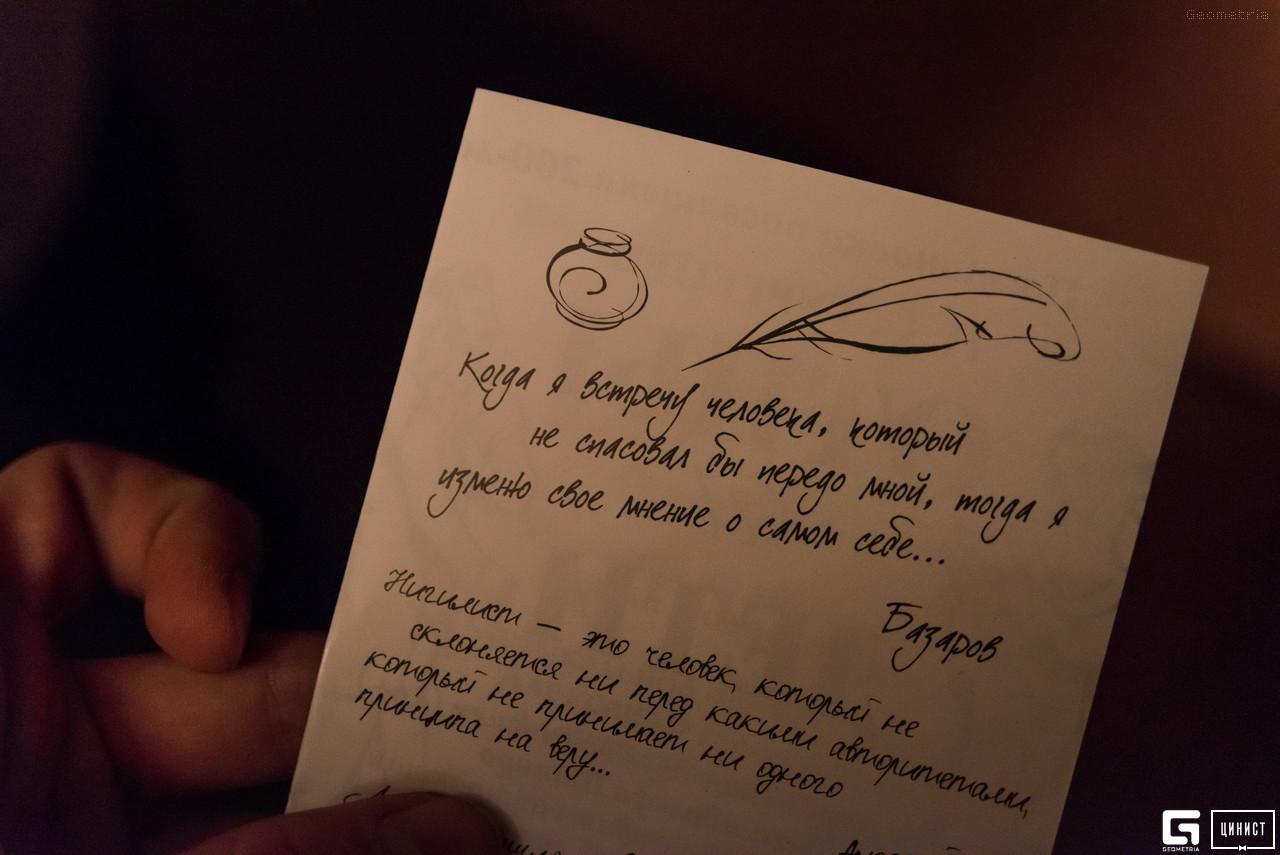 Geometria
Когда я встречу человека, который
не спасовал бы передо мной, тогда я
изменю свое мнение о самом себе...
Базаров
Нигилист — это человек, который не
склоняется ни перед какими авторитетами,
который не принимает ни одного
принципа на веру...
GEOMETRIA
ЦИНИСТ